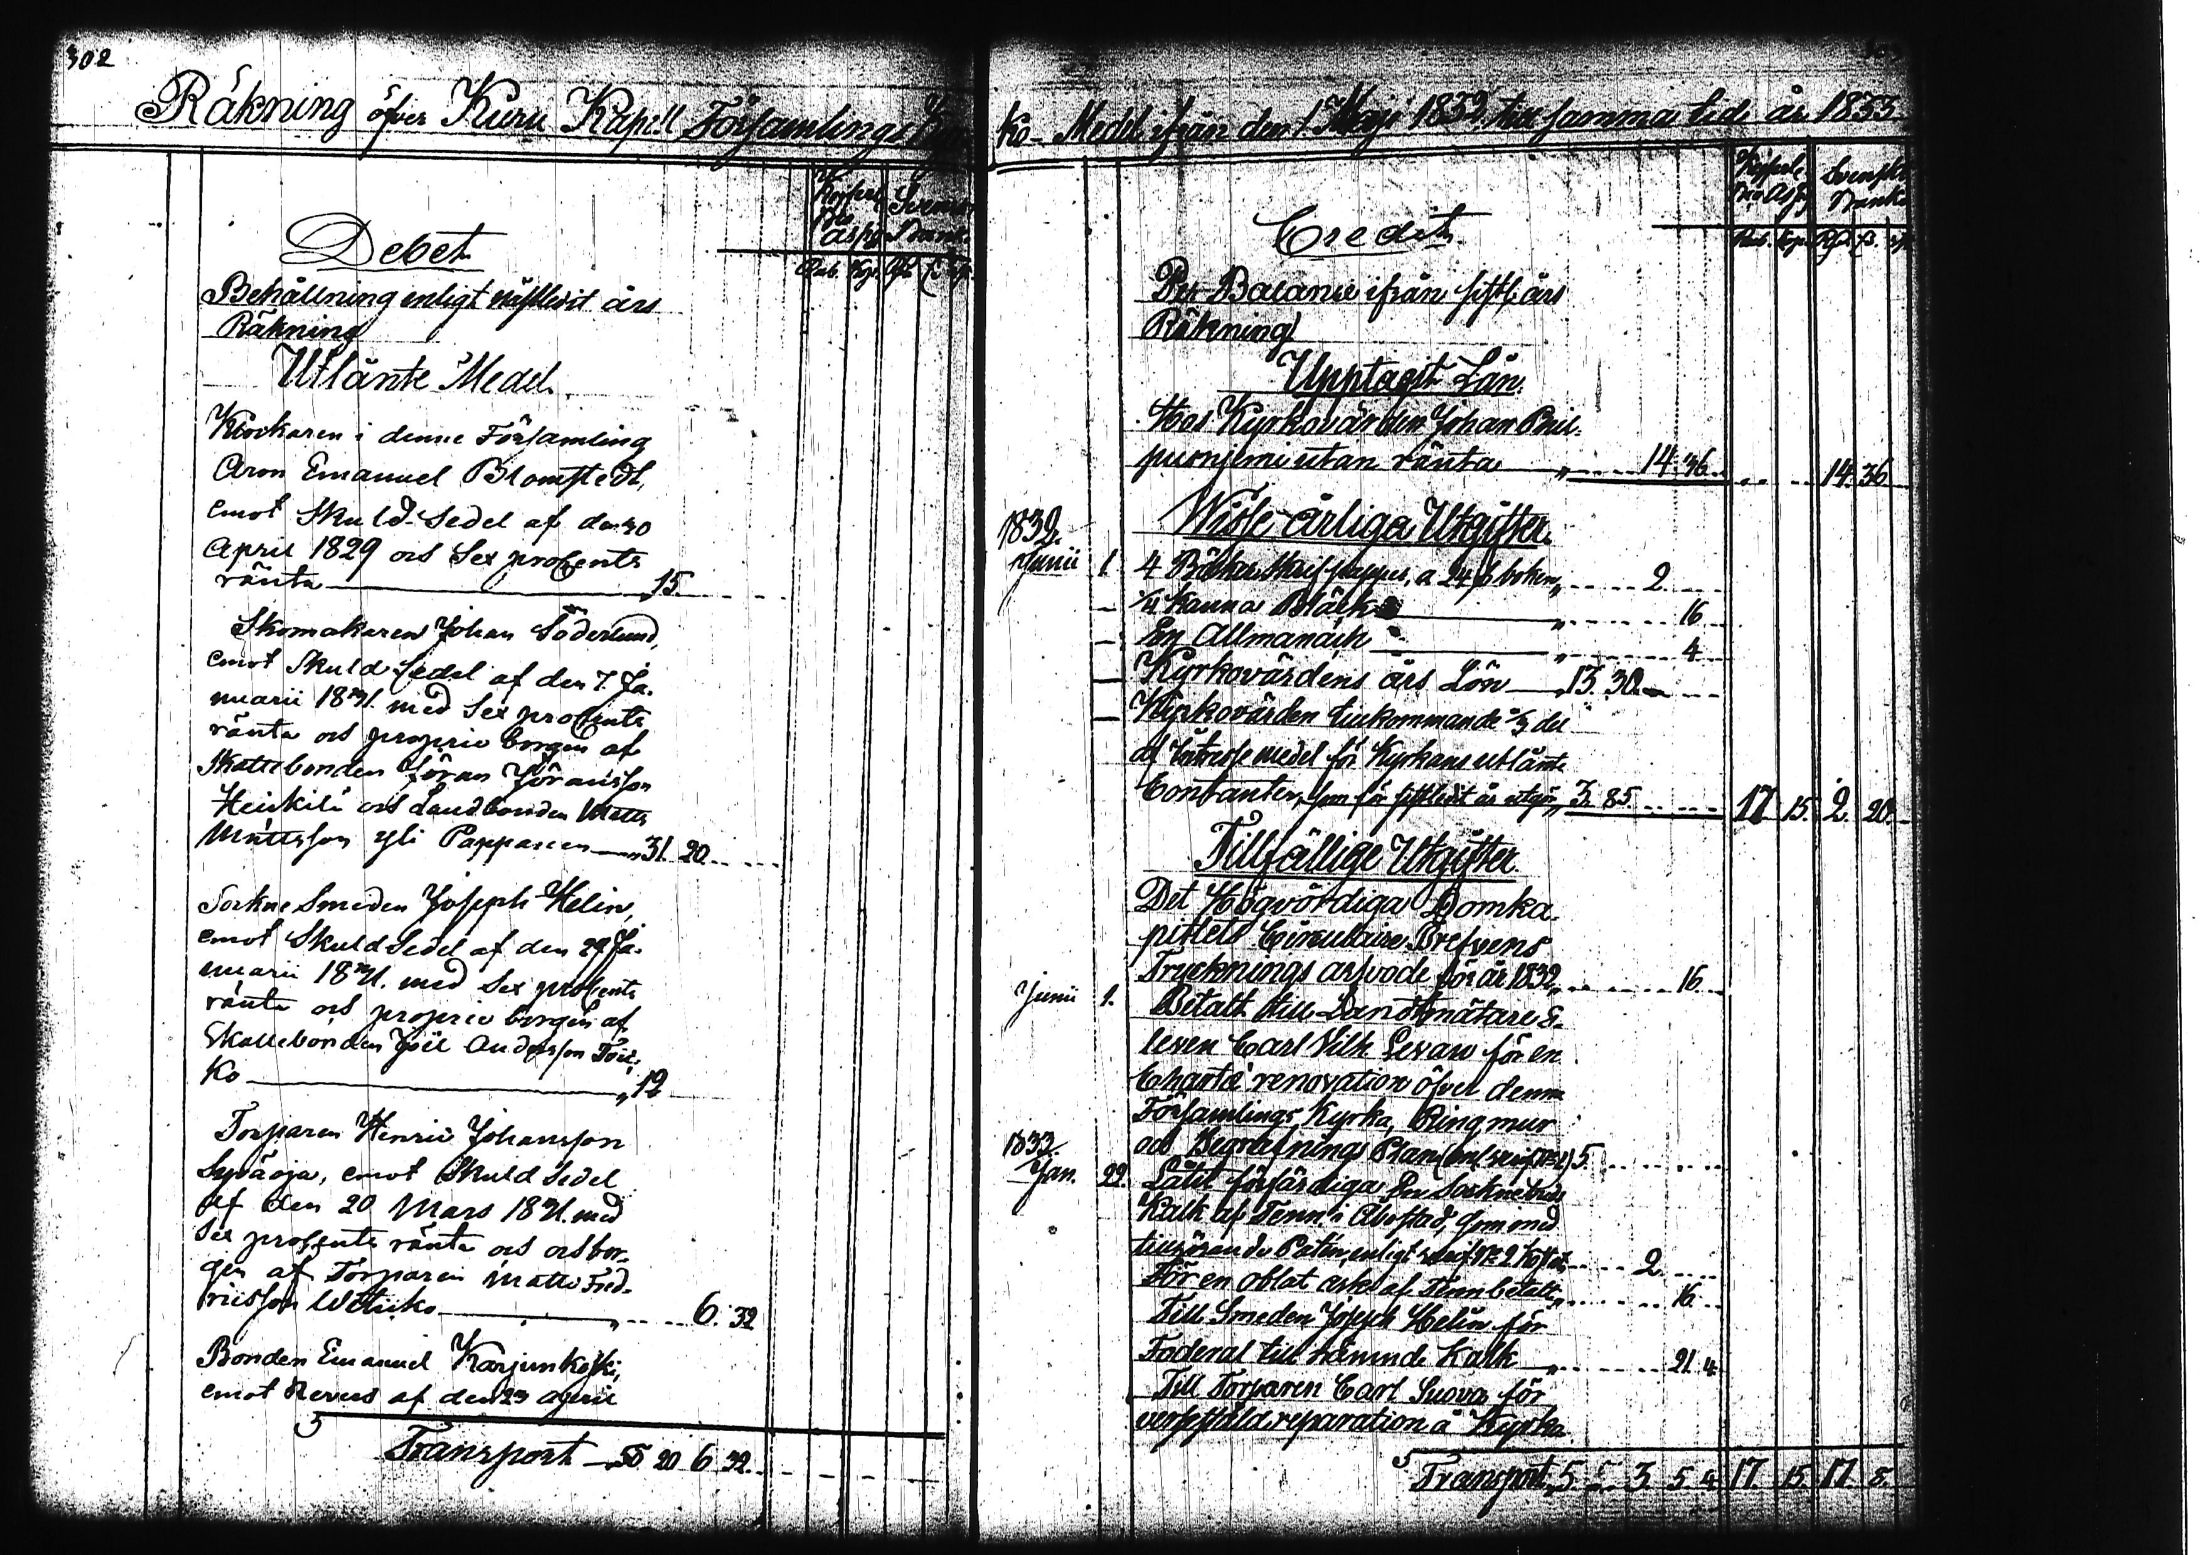 302
Räkning öfver Kuru Kapell Församlings Kyr
Debet
Rub. Kop.
Behållning enligt nästledit års
Räkning
Utlänte Medel.
Klockaren i denne Församling
Aron Emanuel Blomstedt,
emot Skuld-Sedel af den 30
April 1829 och Sex procents
ränta 15.
Skomakaren Johan Söderlund,
emot Skuld Sedel af den 7. Ja-
nuarii med Sex procents
ränta och proprie borgen af
Skattebonden Jöran Jöransson
Heikilä och Landbonden Matts
Mattsson Yli Pappanen 31 20
Sockne Smeden Joseph Helin,
emot Skuld Sedel af den 29 Ja-
nuarii med Sex procents
ränta och proprie borgen af
Skattebonden Joel Andersson Toik-
ko 12
Torparen Henric Johansson
Syväoja, emot Skuld Sedel
af den 20 Mars med
Sex procents ränta och
gen af Torparen Matts Fred-
ricsson 6. 32
Bonden Emanuel Karjunkoski,
emot Revers af den 23 April
Transport 20 6 32.
ko-Medel ifrån den 1. Maji 1832 till samma tid år 1833.
Credit
Svenskt
Banko
Rub. Kop.
Per Balance ifrån sistl. års
Räkning
Upptagit Lån.
Hos Kyrkovärden Johan
utan ränta 14. 36. 14. 36
1832.
Wisse årliga Utgifter.
Junii 1. 4 Böcker Skrifpapper, a 24 ß boken 2
1/4 Kanna Bläck 16
En Allmanach 4
Kyrkovärdens års Lön 13. 30.
Kyrkovärden tillkommande del
af Interesse medel för Kyrkans utlänte
Contanter, som för sistledit år utgör 3. 85 17 15. 2. 20.
Tillfällige Utgifter
Det Högvördiga Domka-
pitlets Circulaire Brefvens
Trycknings arfvode för år 1832 16
Junii 1. Betalt till Landtmätare E-
leven Carl Vilh för en
Charte renovation öfver denna
Församlings Kyrka, Ringmur
1833.
och Begrafnings Plan 5.
Jan. 22. Låtit förfärdiga En Sockne
Kalk af Tenn i Åbo Stad, som med
tillhörande Paten, enligt 2
För en oblat ask af Tenn betalt 16
Till Smeden Joseph Helin för
Foderal till nämnde Kalk 21. 4
Till Torparen Carl Suova för
reparation å Kyrka
Transport 5. 3. 5. 4 17. 15. 17. 8.